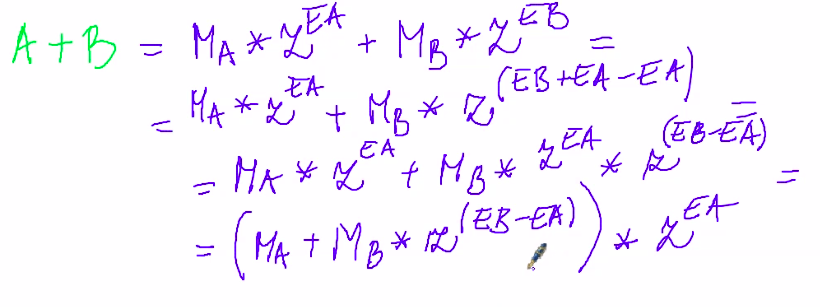 A + B = MA * 2^EA + MB * 2^EB =
= MA * 2^EA + MB * 2^(EB+EA-EA) =
= MA * 2^EA + MB * 2^EA * 2^(EB-EA) =
= (MA + MB * 2^(EB-EA)) * 2^EA